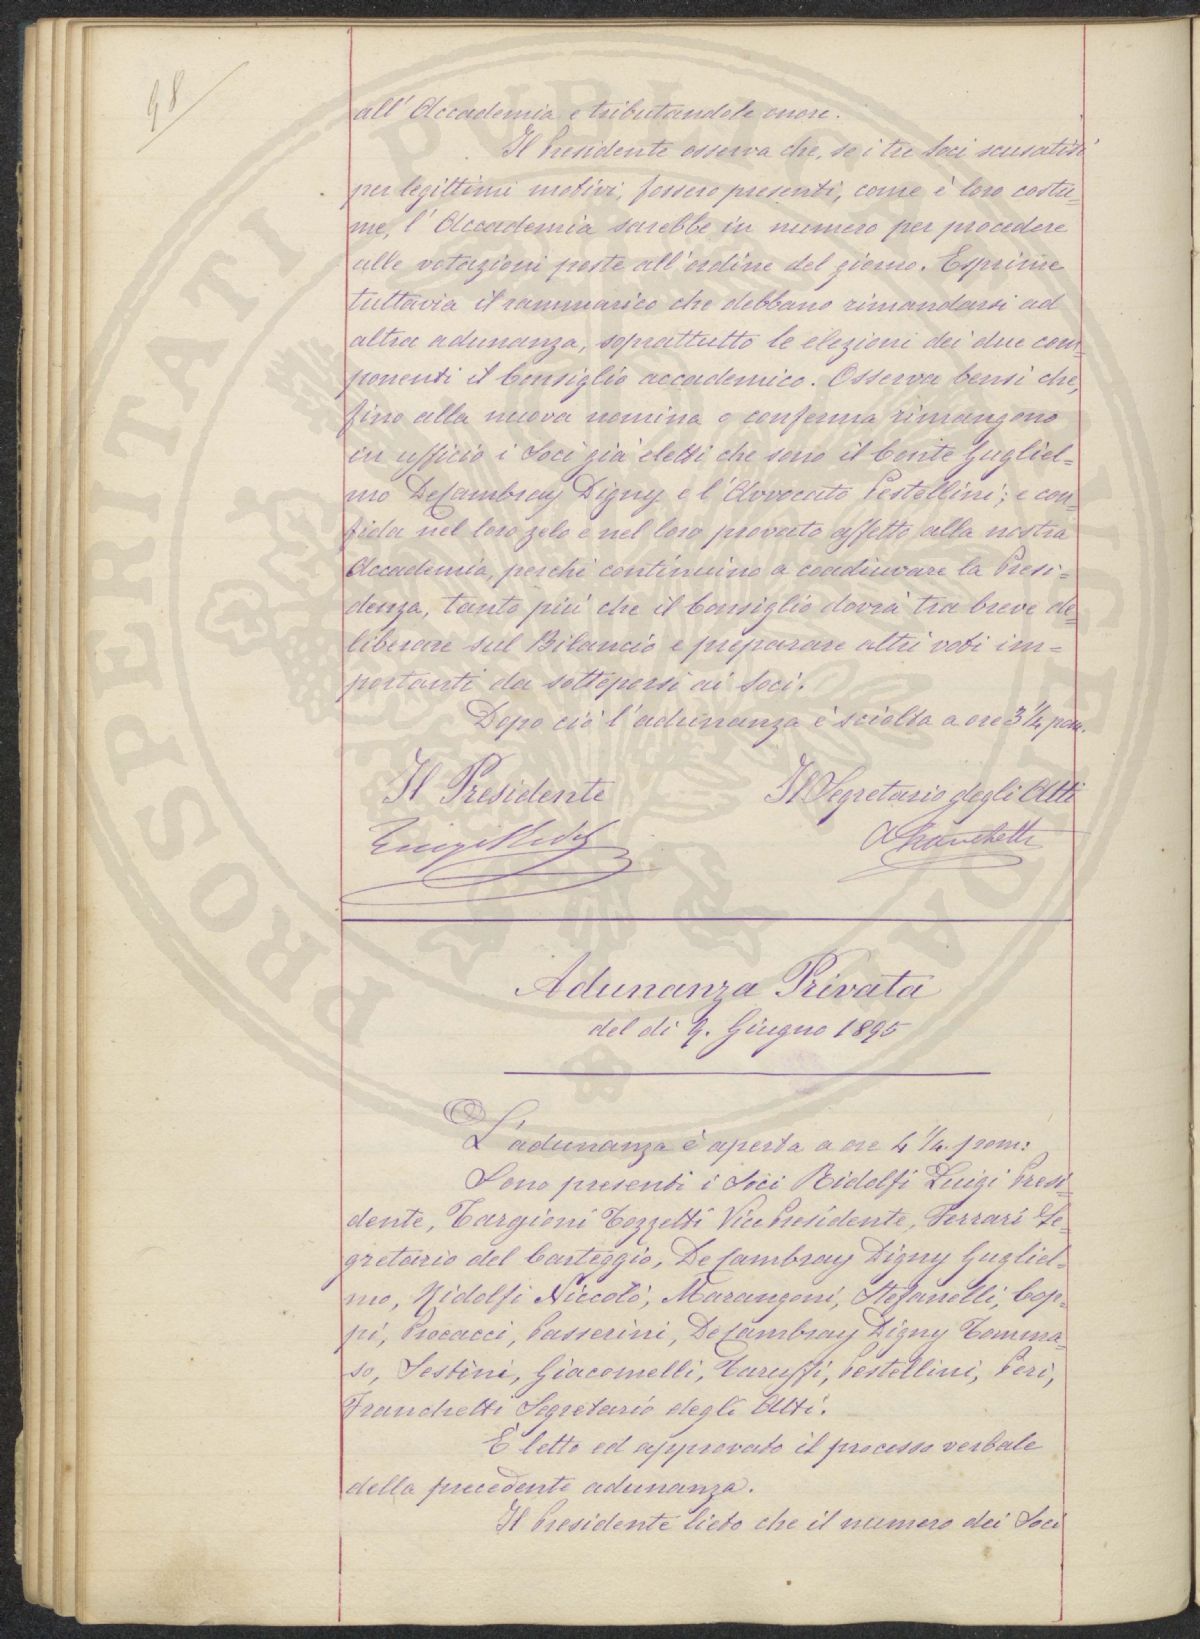 98
all' Accademia e tributandole onore.
Il Presidente osserva che, se i tre Soci scusatisi
per legittimi motivi, fossero presenti, come è loro costu=
me, l' Accademia sarebbe in numero per procedere
alle votazioni poste all'ordine del giorno. Esprime
tuttavia il rammarico che debbano rimandarsi ad
altra adunanza, soprattutto le elezioni dei due com=
ponenti il Consiglio accademico. Osserva bensì che,
fino alla nuova nomina o conferma rimangono
in ufficio i Soci già eletti che sono il Conte Gugliel=
mo DeCambray Digny e l'Avvocato Pestellini; e con=
fida nel loro zelo e nel loro provato affetto alla nostra
Accademia, perchè continuino a coadiuvare la Presi=
denza, tanto più che il Consiglio dovrà tra breve de=
liberare sul Bilancio e preparare altri voti im=
portanti da sottoporsi ai Soci.
Dopo ciò l'adunanza è sciolta a ore 3 1/4 pom.
Il Presidente
Il Segretario degli Atti
Luigi Ridolfi
A Franchetti
Adunanza Privata
del dì 9. Giugno 1895
L'adunanza è aperta a ore 4 1/4. pom:
Sono presenti i Soci Ridolfi Luigi Presi=
dente, Targioni Tozzetti Vice Presidente, Ferrari Se=
gretario del Carteggio, DeCambray Digny Gugliel=
mo, Ridolfi Niccolò, Marangoni, Stefanelli, Cop=
pi, Procacci, Passerini, DeCambray Digny Tomma=
so, Sestini, Giacomelli, Taruffi, Pestellini, Peri,
Franchetti Segretario degli Atti.
È letto ed approvato il processo verbale
della precedente adunanza.
Il Presidente lieto che il numero dei Soci
PROSPERITATI PUBLICAE AUGENDAE